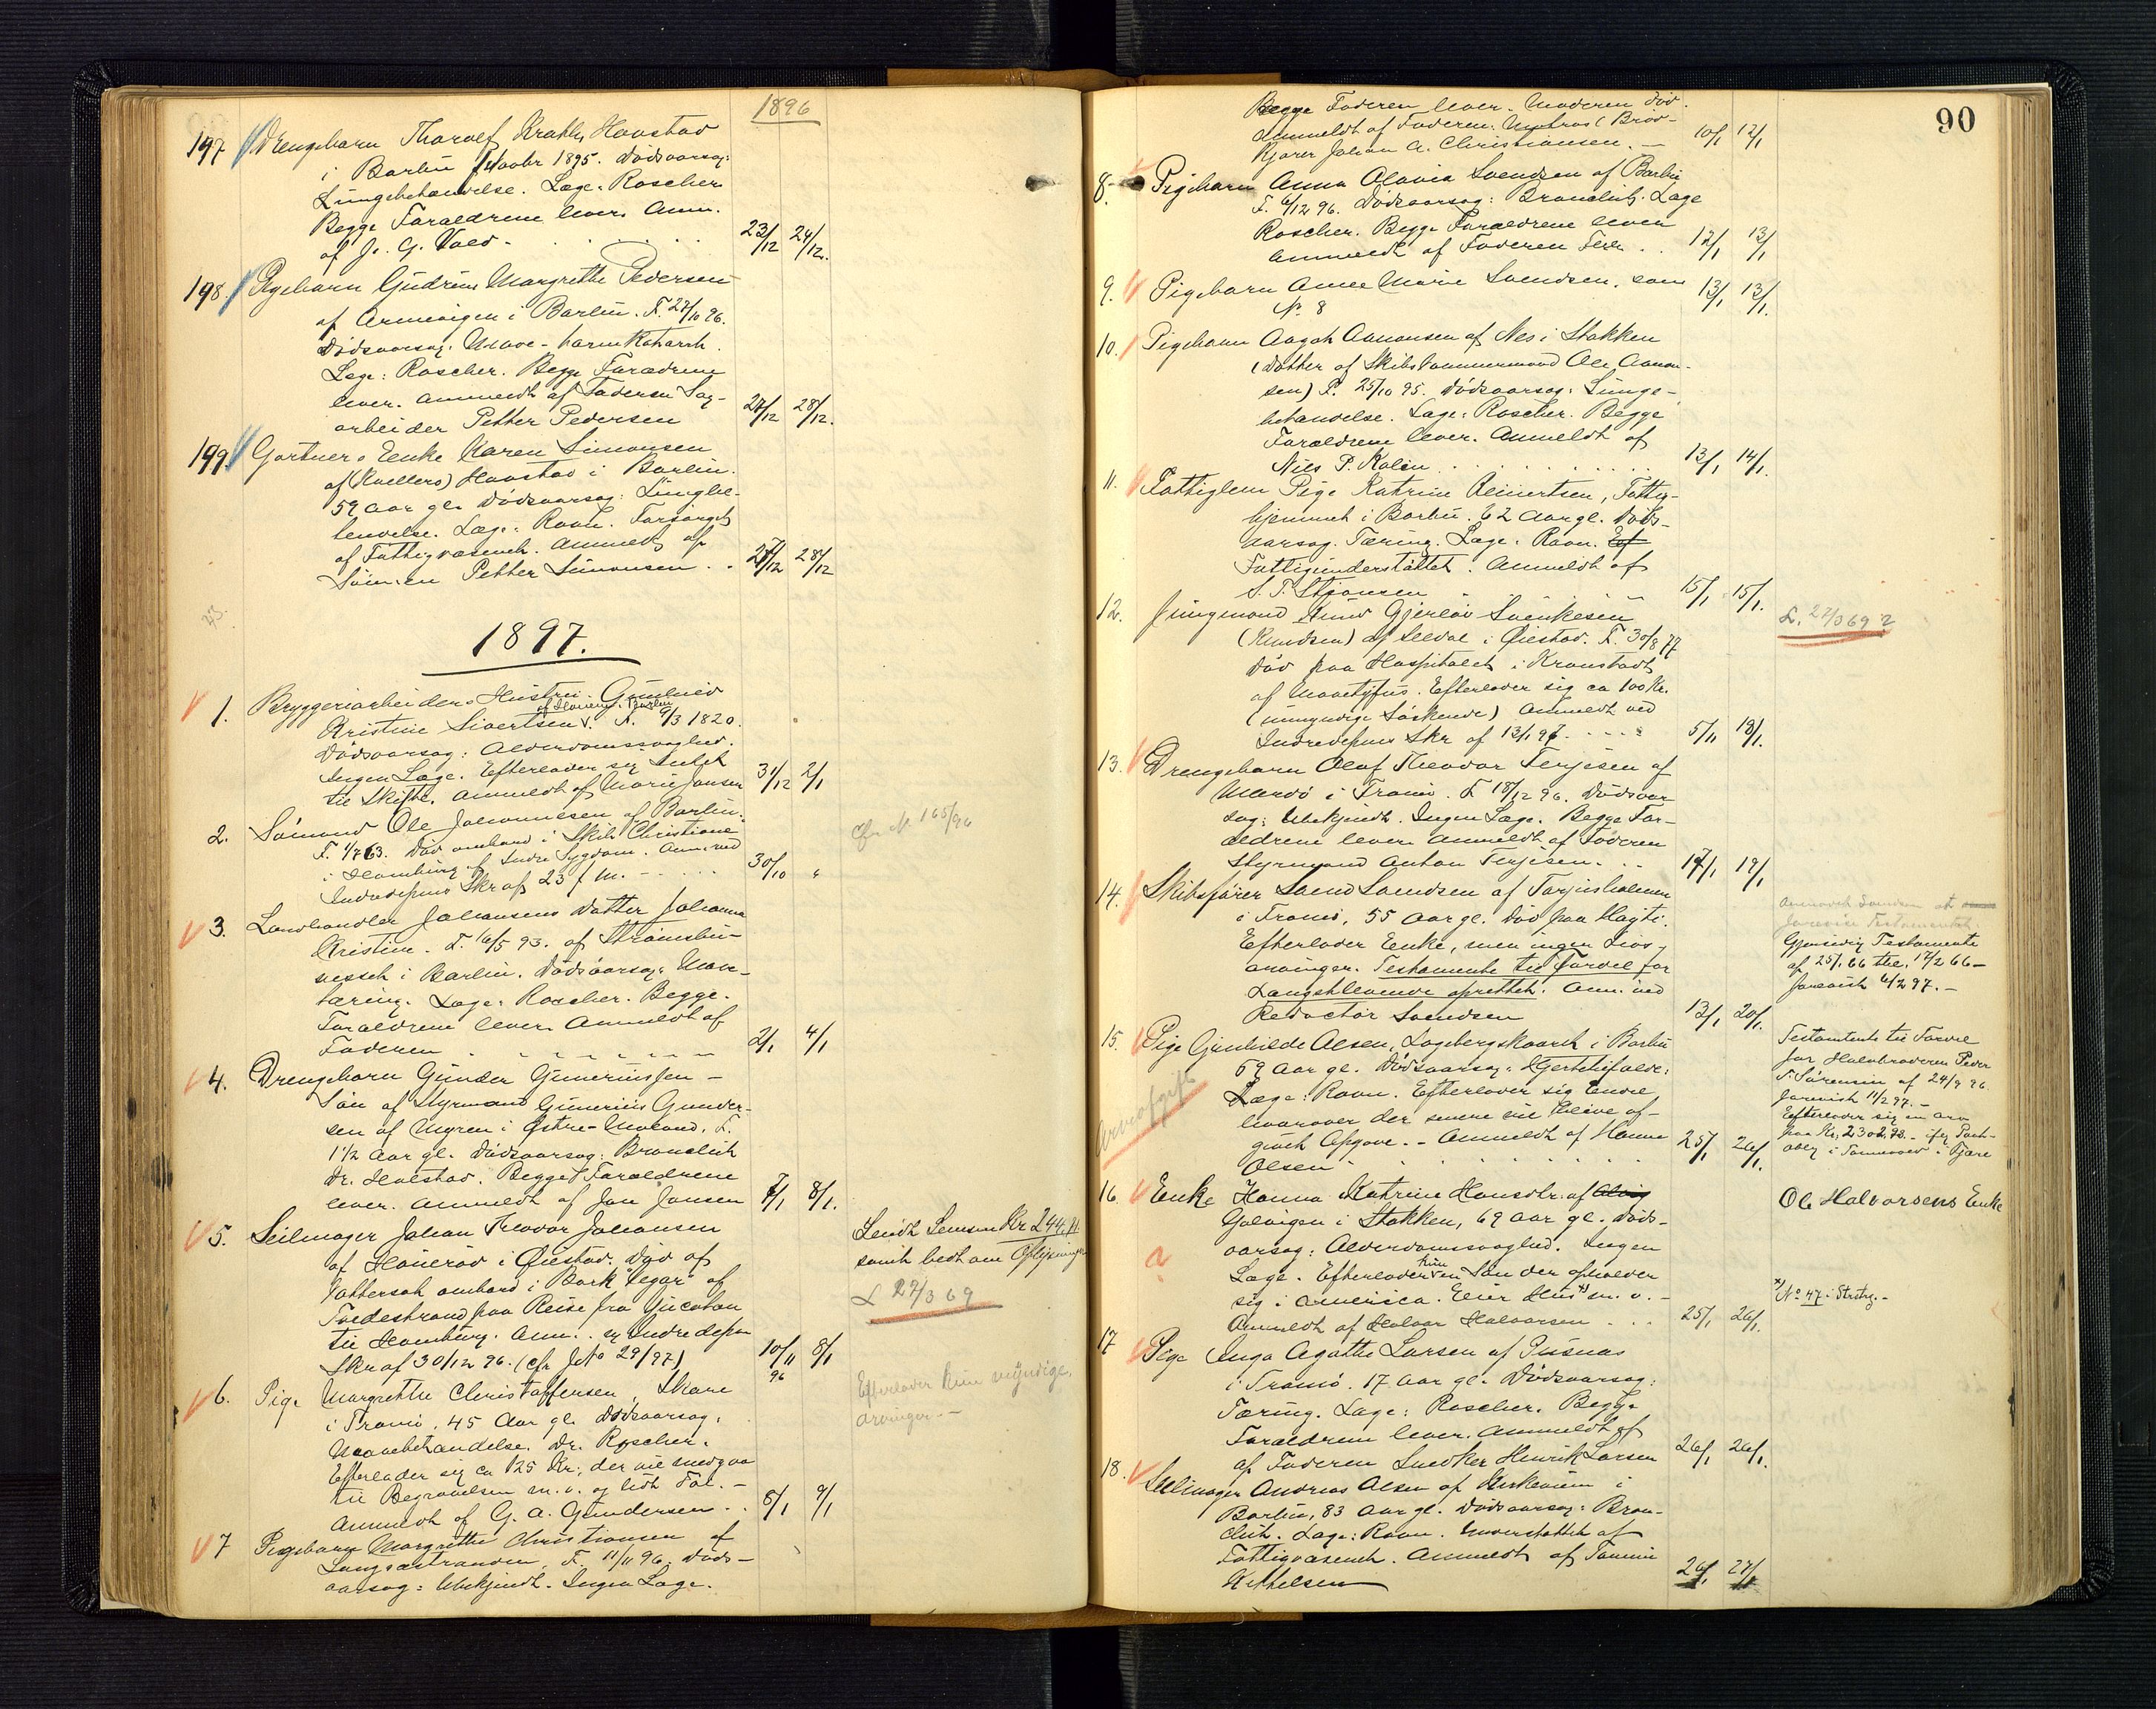 1896
197 Drengebarn Tharalf Havstad
i Barbu 14 novbr 1895. Dødsaarsag:
Lungebetændelse. Læge: Roscher
Begge Forældrene lever. Anm.
af J. G. Vold - 23/12 24/12.
198. Pigebarn Gudrun Margrethe Pedersen
af Arnevigen i Barbu. F. 27/10 96.
Dødsaarsag: Mave-tarmkatarrh.
Læge: Roscher. Begge Forældrene
lever. Anmeldt af Faderen Sag-
arbeider Petter Pedersen 27/12 28/12.
199. Gartner Enke Karen Simonsen
af (Kvellers) Havstad i Barbu.
59 aar gl. Dødsaarsag: Lungebe-
tændelse. Læge: Ravn. Forsørget
af Fattigvæsenet. Anmeldt af
Sønnen Petter Simonsen . . 27/12 28/12
1897.
1. Bryggeriarbeiders Hustru Gunhild
af Havstad i Barbu
Kristine Sivertsen. F. 9/3 1820.
Dødsaarsag: Alderdomssvaghed.
Ingen Læge. Efterlader sig Intet
til Skifte. Anmeldt af Marie Jansen 31/12 2/1
2. Sømand Ole Johannesen af Barbu.
F. 1/7 63. Død ombord i Skib Christiane
i Hamburg af Indre Sygdom. Anm. ved
Indredepns Skr af 23 f. M. - 30/10 "
cfr No 165/96
3. Landhandler Johansens Datter Johanna
Kristine. F. 16/5 93. af Strømsbu-
nesset i Barbu. Dødsaarsag: Mave-
tæring. Læge: Roscher. Begge
Forældrene lever. Anmeldt af
Faderen 2/1 4/1
4. Drengebarn Gunder Gunerius sen -
Søn af Styrmand Gunerius Gunder-
sen af Myren i Østre-Moland. F.
1 1/2 Aar gl. Dødsaarsag: Bronchit
Dr. Holstad. Begge Forældrene
lever. Anmeldt af Jan Jansen 7/1 8/1.
5. Seilmager Johan Theodor Johansen
af Haverød i Øiestad. Død af
Vattersot ombord i Bark "Segar" af
Tvedestrand paa Reise fra Yucatan
til Hamburg. Anm. v. Indredepns
Skr af 30/12 96. (cfr JNo 29/97) 10/11 96 8/1
Sendt Sensur Kr 244.
samt bedt om Oplysninger
L 22/3 69
6. Pige Margrethe Christoffersen, Skare
i Tromø, 45 Aar gl. Dødsaarsag:
Mavebetændelse. Dr. Roscher.
Efterlader sig ca 125 Kr., der vil medgaa
til Begravelsen m. v. og lidt Tøi. -
Anmeldt af G. A. Gundersen . . 8/1 9/1
Efterlader kun myndige
Arvinger. -
7 Pigebarn Margrethe Christiansen af
Langsæstranden, F. 11/11 96. Døds-
aarsag: Ubekjendt. Ingen Læge.
90
Begge Faderen lever. Moderen død.
Anmeldt af Faderen: Matros (Brød-
kjører Johan A. Christiansen. - 10/1 12/1
8. Pigebarn Anna Olavia Svendsen af Barbu
F. 6/12 96. Dødsaarsag: Bronchit. Læge
Roscher. Begge Forældrene lever
Anmeldt af Faderen Terk . . 12/1 13/1
9. Pigebarn Anne Marie Svendsen, som
No. 8 13/1 13/1.
10. Pigebarn Aagot Aanonsen af Nes i Stokken
(Datter af Skibstømmermand Ole Aanon-
sen) F. 25/10 95. Dødsaarsag: Lunge-
betændelse. Læge: Roscher. Begge
Forældrene lever. Anmeldt af
Niels P. Kalin . . . 13/1 14/1.
11. Fattiglem Pige Katrine Reiertsen, Fattig-
hjemmet i Barbu. 62 Aar gl. Døds-
aarsag: Tæring. Læge: Ravn. Ef
Fattigunderstøttet. Anmeldt af
S. T. Stiansen 15/1 15/1.
12. Jungmand Knud Gjerløv Svenkesen
(Knudsen) af Seldal i Øiestad. F. 30/8 77
død paa Hospitalet i Kronstadt
af Mavetyfus. Efterlader sig ca 100 Kr.
(umyndige Søskende) Anmeldt ved
Indredepns Skr af 13/1 97. 5/11 18/1.
L. 22/3 69 2
13. Drengebarn Olaf Theodor Terjesen af
Mærdø i Tromø. F 18/12 96. Dødsaar-
sag: Ubekjendt. Ingen Læge. Begge For-
ældrene lever. Anmeldt af Faderen
Styrmand Anton Terjesen. . . 17/1 19/1
14. Skibsfører Svend Svendsen af Torjusholmen
i Tromø, 55 Aar gl. Død paa Hayti.
Efterlader Enke, men ingen Livs-
arvinger. Testamente til Fordel for
Længstlevende oprettet. Anm. ved
Redactør Svendsen 13/1 20/1.
Gjensidig Testamente
af 25/1 66 thl. 17/2 66 -
forevist 6/2 97. -
15. Pige Gunhilde Olsen, Langbergskaaret i Barbu
69 Aar gl. Dødsaarsag: Hjertefeil:
Læge: Ravn. Efterlader sig Endel
hvorover der senere vil blive af-
givet Opgave. - Anmeldt af Hanne
Olsen 25/1 26/1.
Arveafgift
Testamente til Fordel
for Halvbroderen Peder
S. Sørensen af 24/9 96
forevist 11/2 97. -
Efterlader sig en arv
paa Kr. 2302,98 -
16. Enke Hanna Katrine Hansdtr. af
Galvigen i Stokken, 69 aar gl. Døds-
aarsag: Alderdomssvaghed. Ingen
Læge. Efterlader kun en Søn der opholder
sig i Amerika. Eier Hus *) m. v. -
Anmeldt af Halvor Halvorsen . . . 25/1 26/1.
Ole Halvorsens Enke
*) No 47 i Strstrg. -
17 Pige Inga Agathe Larsen af Pusnæs
i Tromø. 17 Aar gl. Dødsaarsag:
Tæring. Læge: Roscher. Begge
Forældrene lever. Anmeldt af
af Faderen Snedker Henrik Larsen 26/1 26/1.
18. Seilmager Andreas Olsen af Kirkeveien i
Barbu, 83 Aar gl. Dødsaarsag: Bron-
chit. Læge: Ravn. Understøttet af
Fattigvæsenet. Anmeldt af Tomine
Kittelsen 26/1 27/1